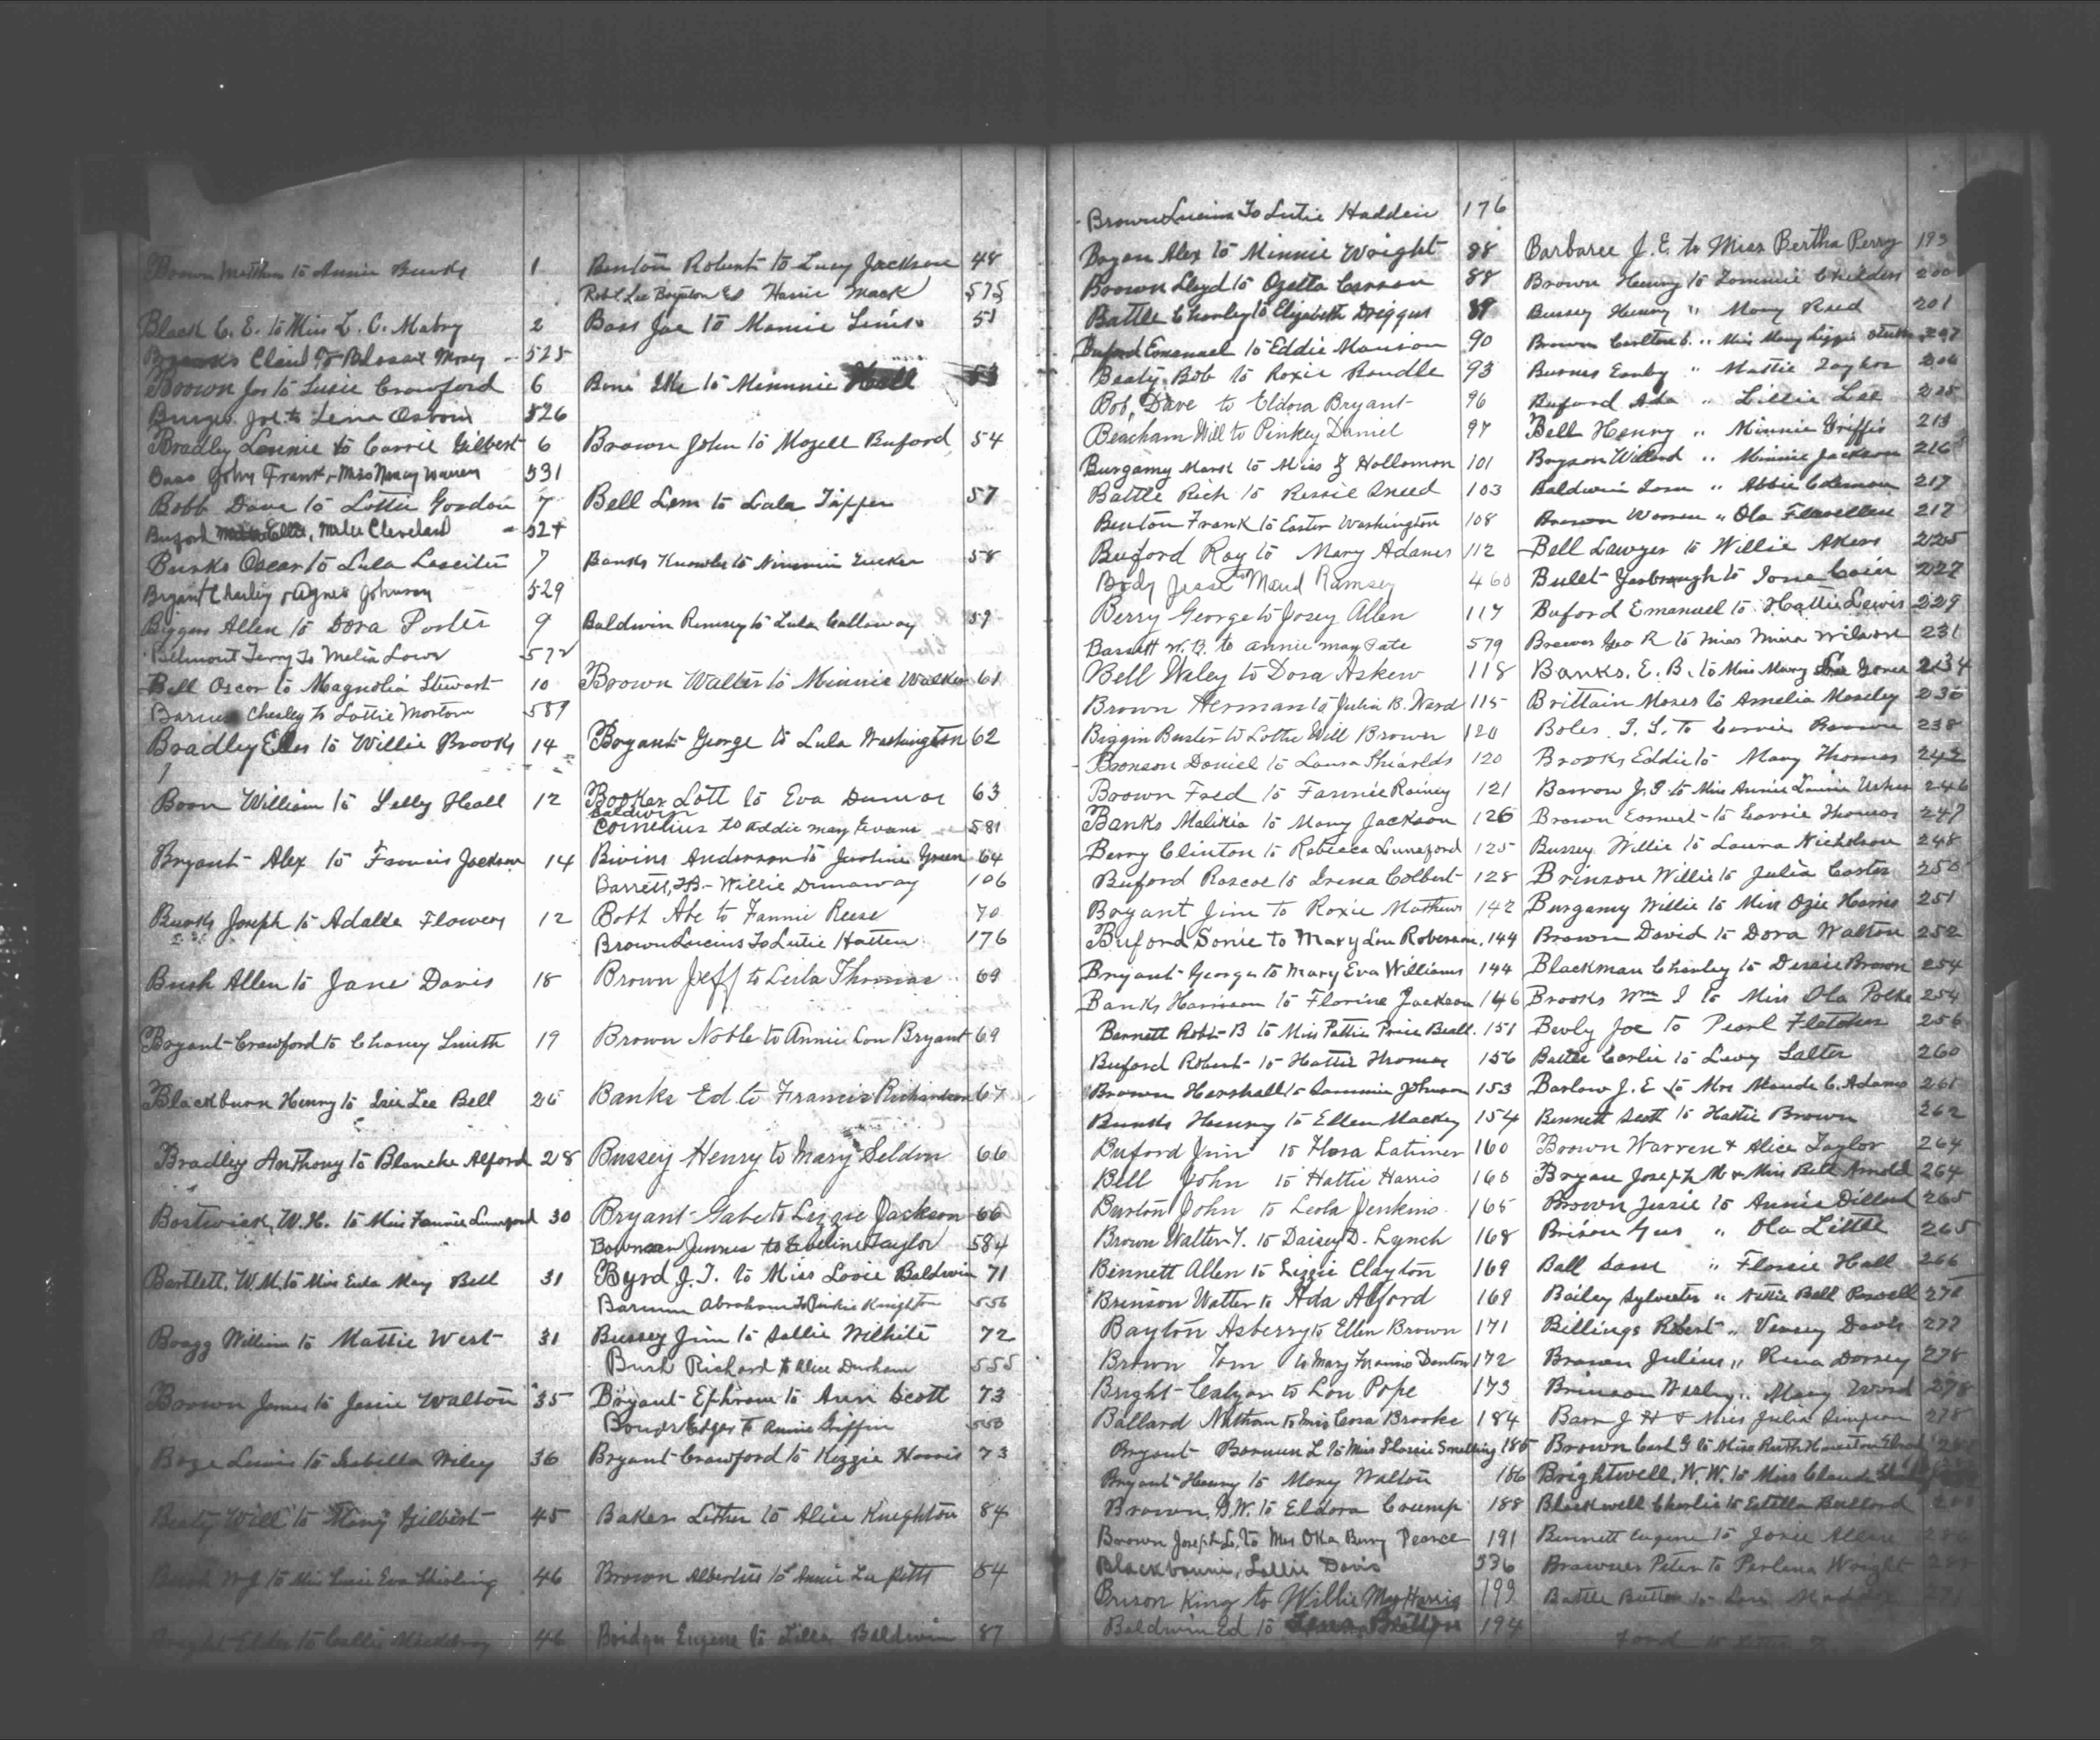 Brown to Annie Burks 1
Black C. E. to Miss L. C. Mabry 2
Claud to Mosey 525
Brown Joe to Susie Crawford 6
Joe to Lena Osborn 526
Bradley Lonnie to Carrie Gilbert 6
Bass John Frank, Miss Nancy Warren 531
Bobb Dave to Lottie Gordon 7
Buford Cleveland 524
Burks Oscar to Lula 7
Bryant Charley, Agnes Johnson 529
Biggers Allen to Dora Porter 9
Belmont Terry to Melia Lowe 572
Bell Oscar to Magnolia Stewart 10
Chesley to Lottie Morton 589
Bradley to Willie Brooks 14
Boon William to Heall 12
Bryant Alex to Francis Jackson 14
Joseph to Flowers 12
Bush Allen to Jane Davis 18
Bryant Crawford to Chaney Smith 19
Blackburn Henry to Lee Bell 26
Bradley Anthony to Blanche Alford 28
Bostwick, W. H. to Miss Fannie Lunsford 30
Bartlett, W. M. to Miss Eula May Bell 31
Bragg William to Mattie West 31
Brown James to Janie Walton 35
Boze Lewis to Isabella Wiley 36
Beaty Will to Mary Gilbert 45
to Miss Eva 46
to 46
Benton Robert to Lucy Jackson 48
Robt Lee Boynton Mack 575
Bass Joe to Mamie 51
Bone Ike to Minnie 53
Brown John to Mozell Buford 54
Bell Lem to Lula Tapper 57
Banks Knowles to Tucker 58
Baldwin Rumsey to Lula Calloway 59
Brown Walter to Minnie Walker 61
Bryant George to Lula Washington 62
Booker Lott to Eva Dumas 63
Baldwin
Cornelius to Addie May Evans 581
Bivins Anderson to Justine Green 64
Barrett, - Willie Dunaway 106
Bobb Abe to Fannie Reese 70
Brown Lucius To Lutie Hatten 176
Brown Jeff to Leila Thomas 69
Brown Noble to Annie Lou Bryant 69
Banks Ed to Francis Richardson 67
Bussey Henry to Mary Seldon 66
Bryant Gabe to Lizzie Jackson 66
Bowman James to Eveline Taylor 584
Byrd J. T. to Miss Lovie Baldwin 71
Abraham To Pinkie Knighton 556
Bussey Jim to Sallie Wilhite 72
Bush Richard to Alice Durham 555
Bryant Ephrom to Ann Scott 73
Edgar to Annie Griffin 550
Bryant Crawford to Kizzie Harris 73
Baker Luther to Alice Knighton 84
Brown Albertus to Annie Lee Pitts 84
Bridges Eugene to Lilla Baldwin 87
Brown Lucius To Lutie Hadden 176
Alex to Minnie Wright 88
Brown Lloyd to Ozella Carson 88
Battle Charley to Elizabeth Driggus 89
Buford Emanuel to Eddie Manson 90
Beaty Bob to Roxie Randle 93
Bob, Dave to Eldora Bryant 96
Beacham Will to Pinkey Daniel 97
Burgamy Mark to Miss Hollomon 101
Battle Rich to Ressie Sneed 103
Benton Frank to Easter Washington 108
Buford Roy to Mary Adams 112
Body Jesse to Maud Ramsey 460
Berry George to Josey Allen 117
Bassett W. B. to Annie May Pate 579
Bell Waley to Dora Askew 118
Brown Herman to Julia B. Ward 115
Biggin Buster to Lottie Will Brown 120
Bronson Daniel to Laura 120
Brown Fred to Fannie Rainey 121
Banks to Mary Jackson 126
Berry Clinton to Rebecca Lunsford 125
Buford Roscoe to Irena Colbert 128
Bryant Jim to Roxie Mathews 142
Buford Sonie to Mary Lou Roberson 144
Bryant George to Mary Eva Williams 144
Banks Harrison to Florine Jackson 146
Bennett Robt B to Miss Pattie Price Beall. 151
Buford Robert to Hattie Thomas 156
Brown Hershall to Sammie Johnson 153
Burks Henry to Ellen Mackey 154
Buford Jim to Flora Latimer 160
Bell John to Hattie Harris 160
Burton John to Leola Jenkins 165
Brown Walter T. to Daisey D. Lynch 168
Bennett Allen to Lizzie Clayton 169
Brinson Walter to Ada Alford 169
Bayton Asberry to Ellen Brown 171
Brown Tom to Mary Denton 172
Bright to Lou Pope 173
Ballard Nathan to Miss Cora Brooks 184
Bryant L to Miss Florrie Smelling 185
Bryant Henry to Mary Walton 186
Brown, G. W. to Eldora Crump 188
Brown Joseph L. to Mrs Oka Berry Pearce 191
Lollie Davis 536
Brison King to Willie May Harris 193
Baldwin Ed to 194
Barbaree J. E. to Miss Bertha Perry 193
Brown Henry to Tommie Childers 200
Bussey Henry " Mary Reed 201
Brown " Miss Mary Lizzie 207
" Mattie Taylor
Buford Ada " Lillie Lee
Bell Henry " Minnie Griffis 213
Bryson Willard " Minnie Jackson 216
Baldwin " Abbie Coleman 217
Brown Warren " Ola Flewellen 217
Bell Lawyer to Willie Akers 225
Bullet Yarbrough to Ione Cain 227
Buford Emanuel to Hattie Lewis 229
Brewer Geo R to Miss Mina Wilson 231
Banks, E. B. to Miss Mary Jones 234
Brittain Moses to Amelia Moseley 236
Boles to Carrie 238
Brooks Eddie to Mary Thomas 242
Barrow to Miss Annie 246
Brown Earnest to Carrie Thomas 247
Bussey Willie to Laura Nicholson 248
Brinson Willie to Julia Carter 250
Burgamy Willie to Miss Ozie Harris 251
Brown David to Dora Walton 252
Blackman Charley to Dessie Brown 254
Brooks Wm J to Miss Ola Polke 254
Joe to Pearl Fletcher 256
Battle Carlie to Salter 260
Barlow J. E. to Mrs Maude C. Adams 261
Bennett Scott to Hattie Brown 262
Brown Warren & Alice Taylor 264
Bryan Joseph M & Miss Bell Arnold 264
Brown Jessie to Annie Dillard 265
Brison Gus " Ola Little 265
Ball Sam " Flossie Hall 266
Bailey Sylvester " Nettie Bell Powell 276
Billings Robert " Versey Davis 277
Brown Julius " Rena Dorsey 278
Brinson Wesley " Mary Word 278
J H & Miss Julia Simpson 278
Brown Carl G to Miss Ruth
Brightwell, W. W. to Miss Claude
Blackwell Charlie to Estella Bullard
Bennett Eugene to Josie Allen
Brawner Peter to Perlena Wright
Battle to
Ford to